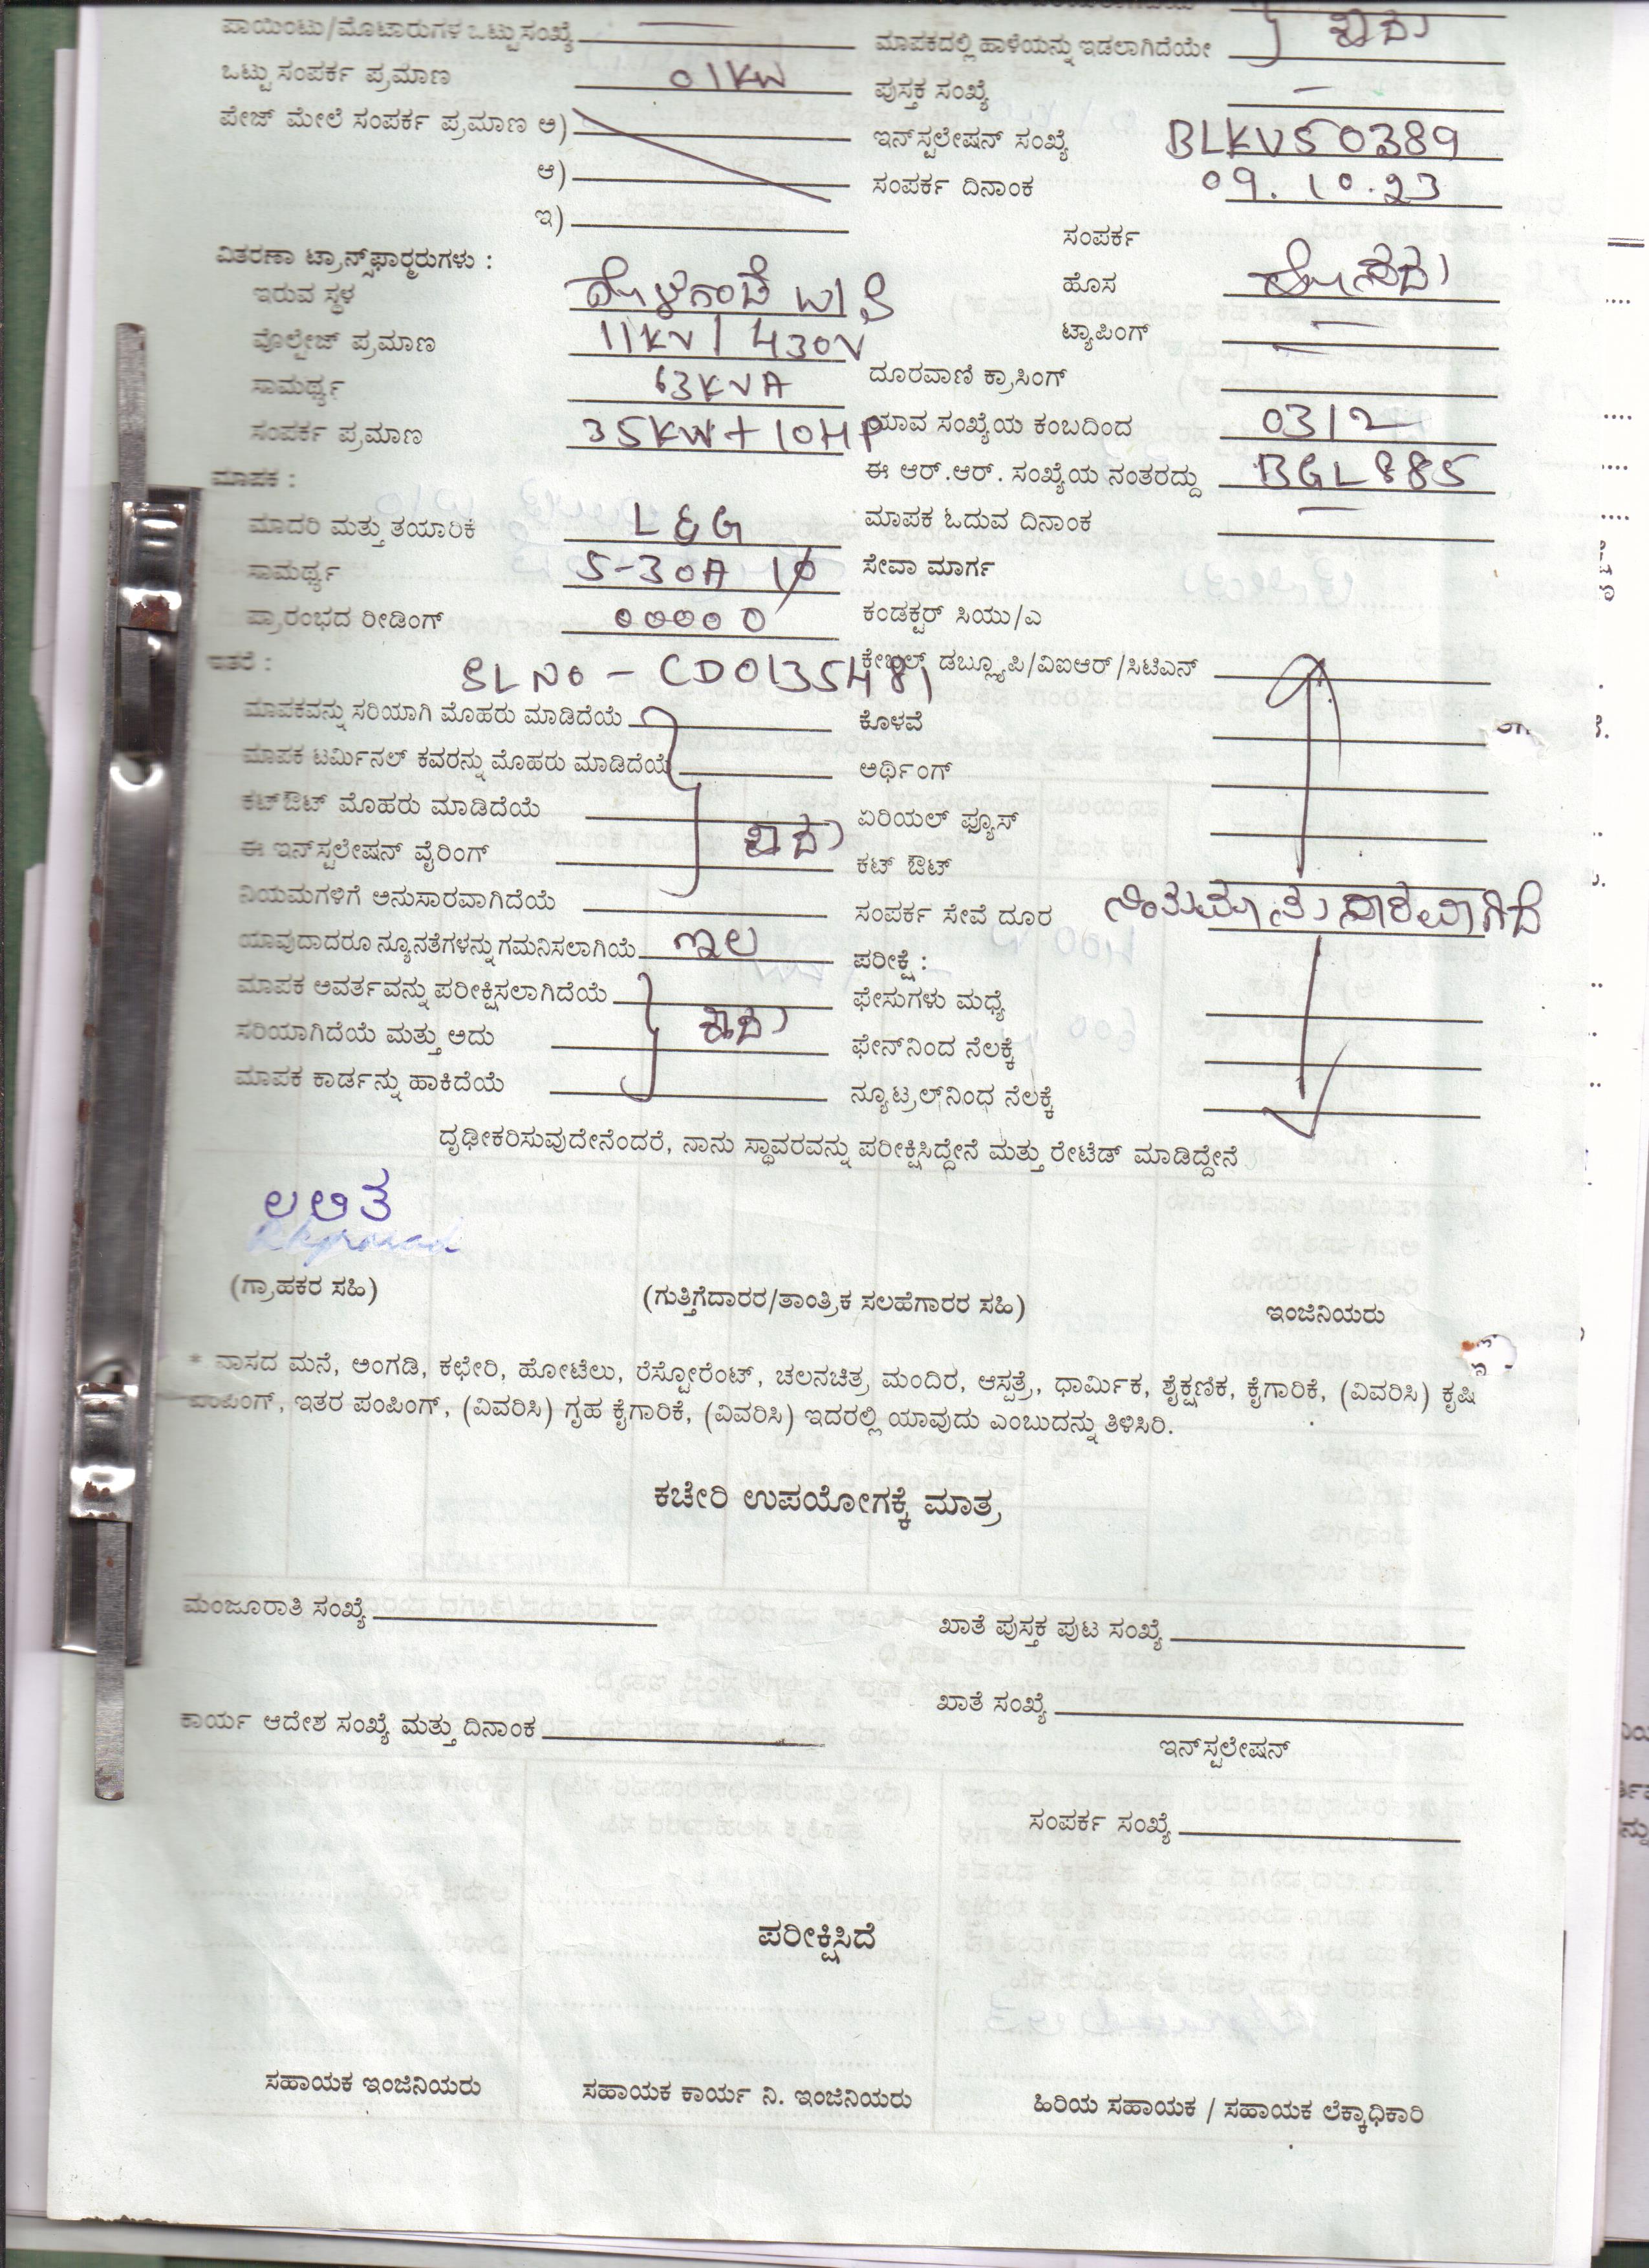 ಪಾಯಿಂಟು/ಮೊಟಾರುಗಳ ಒಟ್ಟುಸಂಖ್ಯೆ
ಮಾಪಕದಲ್ಲಿ ಹಾಳೆಯನ್ನು ಇಡಲಾಗಿದೆಯೇ
ಒಟ್ಟು ಸಂಪರ್ಕ ಪ್ರಮಾಣ 01KW
ಪುಸ್ತಕ ಸಂಖ್ಯೆ —
ಪೇಜ್ ಮೇಲೆ ಸಂಪರ್ಕ ಪ್ರಮಾಣ ಅ)
ಇನ್‌ಸ್ಟಲೇಷನ್ ಸಂಖ್ಯೆ BLKVS0389
ಆ)
ಸಂಪರ್ಕ ದಿನಾಂಕ 09.10.23
ಇ)
ಸಂಪರ್ಕ
ವಿತರಣಾ ಟ್ರಾನ್ಸ್‌ಫಾರ್ಮರುಗಳು :
ಇರುವ ಸ್ಥಳ
ಹೊಸ
ವೊಲ್ಟೇಜ್ ಪ್ರಮಾಣ 11KV / 430V
ಟ್ಯಾಪಿಂಗ್ —
ಸಾಮರ್ಥ್ಯ 63KVA
ದೂರವಾಣಿ ಕ್ರಾಸಿಂಗ್
ಸಂಪರ್ಕ ಪ್ರಮಾಣ 35KW+10HP
ಯಾವ ಸಂಖ್ಯೆಯ ಕಂಬದಿಂದ 0312
ಮಾಪಕ :
ಈ ಆರ್.ಆರ್. ಸಂಖ್ಯೆಯ ನಂತರದ್ದು BGL885
ಮಾದರಿ ಮತ್ತು ತಯಾರಿಕೆ L&G
ಮಾಪಕ ಓದುವ ದಿನಾಂಕ —
ಸಾಮರ್ಥ್ಯ 5-30A 1ϕ
ಸೇವಾ ಮಾರ್ಗ
ಪ್ರಾರಂಭದ ರೀಡಿಂಗ್ 00000
ಕಂಡಕ್ಟರ್ ಸಿಯು/ಎ
ಇತರೆ : SLNO - CD0135481
ಕೇಬಲ್ ಡಬ್ಲ್ಯೂಪಿ/ವಿಐಆರ್/ಸಿಟಿಎನ್
ಮಾಪಕವನ್ನು ಸರಿಯಾಗಿ ಮೊಹರು ಮಾಡಿದೆಯೆ
ಕೊಳವೆ
ಮಾಪಕ ಟರ್ಮಿನಲ್ ಕವರನ್ನು ಮೊಹರು ಮಾಡಿದೆಯೆ
ಅರ್ಥಿಂಗ್
ಕಟ್‌ಔಟ್ ಮೊಹರು ಮಾಡಿದೆಯೆ
ಏರಿಯಲ್ ಫ್ಯೂಸ್
ಈ ಇನ್‌ಸ್ಟಲೇಷನ್ ವೈರಿಂಗ್
ಕಟ್ ಔಟ್
ನಿಯಮಗಳಿಗೆ ಅನುಸಾರವಾಗಿದೆಯೆ
ಸಂಪರ್ಕ ಸೇವೆ ದೂರ
ಯಾವುದಾದರೂ ನ್ಯೂನತೆಗಳನ್ನು ಗಮನಿಸಲಾಗಿಯೆ ಇಲ
ಪರೀಕ್ಷೆ :
ಮಾಪಕ ಆವರ್ತವನ್ನು ಪರೀಕ್ಷಿಸಲಾಗಿದೆಯೆ
ಫೇಸುಗಳು ಮಧ್ಯೆ
ಸರಿಯಾಗಿದೆಯೆ ಮತ್ತು ಅದು
ಫೇನ್‌ನಿಂದ ನೆಲಕ್ಕೆ
ಮಾಪಕ ಕಾರ್ಡನ್ನು ಹಾಕಿದೆಯೆ
ನ್ಯೂಟ್ರಲ್‌ನಿಂಧ ನೆಲಕ್ಕೆ
ದೃಢೀಕರಿಸುವುದೇನೆಂದರೆ, ನಾನು ಸ್ಥಾವರವನ್ನು ಪರೀಕ್ಷಿಸಿದ್ದೇನೆ ಮತ್ತು ರೇಟೆಡ್ ಮಾಡಿದ್ದೇನೆ
ಲಲಿತ
(ಗ್ರಾಹಕರ ಸಹಿ)
(ಗುತ್ತಿಗೆದಾರರ/ತಾಂತ್ರಿಕ ಸಲಹೆಗಾರರ ಸಹಿ)
ಇಂಜಿನಿಯರು
* ವಾಸದ ಮನೆ, ಅಂಗಡಿ, ಕಛೇರಿ, ಹೋಟೆಲು, ರೆಸ್ಟೋರೆಂಟ್, ಚಲನಚಿತ್ರ ಮಂದಿರ, ಆಸ್ಪತ್ರೆ, ಧಾರ್ಮಿಕ, ಶೈಕ್ಷಣಿಕ, ಕೈಗಾರಿಕೆ, (ವಿವರಿಸಿ) ಕೃಷಿ
ಪಂಪಿಂಗ್, ಇತರ ಪಂಪಿಂಗ್, (ವಿವರಿಸಿ) ಗೃಹ ಕೈಗಾರಿಕೆ, (ವಿವರಿಸಿ) ಇದರಲ್ಲಿ ಯಾವುದು ಎಂಬುದನ್ನು ತಿಳಿಸಿರಿ.
ಕಚೇರಿ ಉಪಯೋಗಕ್ಕೆ ಮಾತ್ರ
ಮಂಜೂರಾತಿ ಸಂಖ್ಯೆ
ಖಾತೆ ಪುಸ್ತಕ ಪುಟ ಸಂಖ್ಯೆ
ಖಾತೆ ಸಂಖ್ಯೆ
ಕಾರ್ಯ ಆದೇಶ ಸಂಖ್ಯೆ ಮತ್ತು ದಿನಾಂಕ
ಇನ್‌ಸ್ಟಲೇಷನ್
ಸಂಪರ್ಕ ಸಂಖ್ಯೆ
ಪರೀಕ್ಷಿಸಿದೆ
ಸಹಾಯಕ ಇಂಜಿನಿಯರು
ಸಹಾಯಕ ಕಾರ್ಯ ನಿ. ಇಂಜಿನಿಯರು
ಹಿರಿಯ ಸಹಾಯಕ / ಸಹಾಯಕ ಲೆಕ್ಕಾಧಿಕಾರಿ